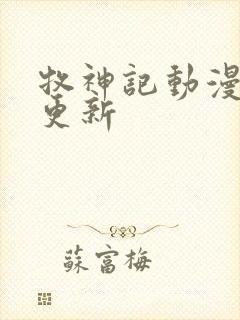 牧神記動漫
更新
蘇富梅